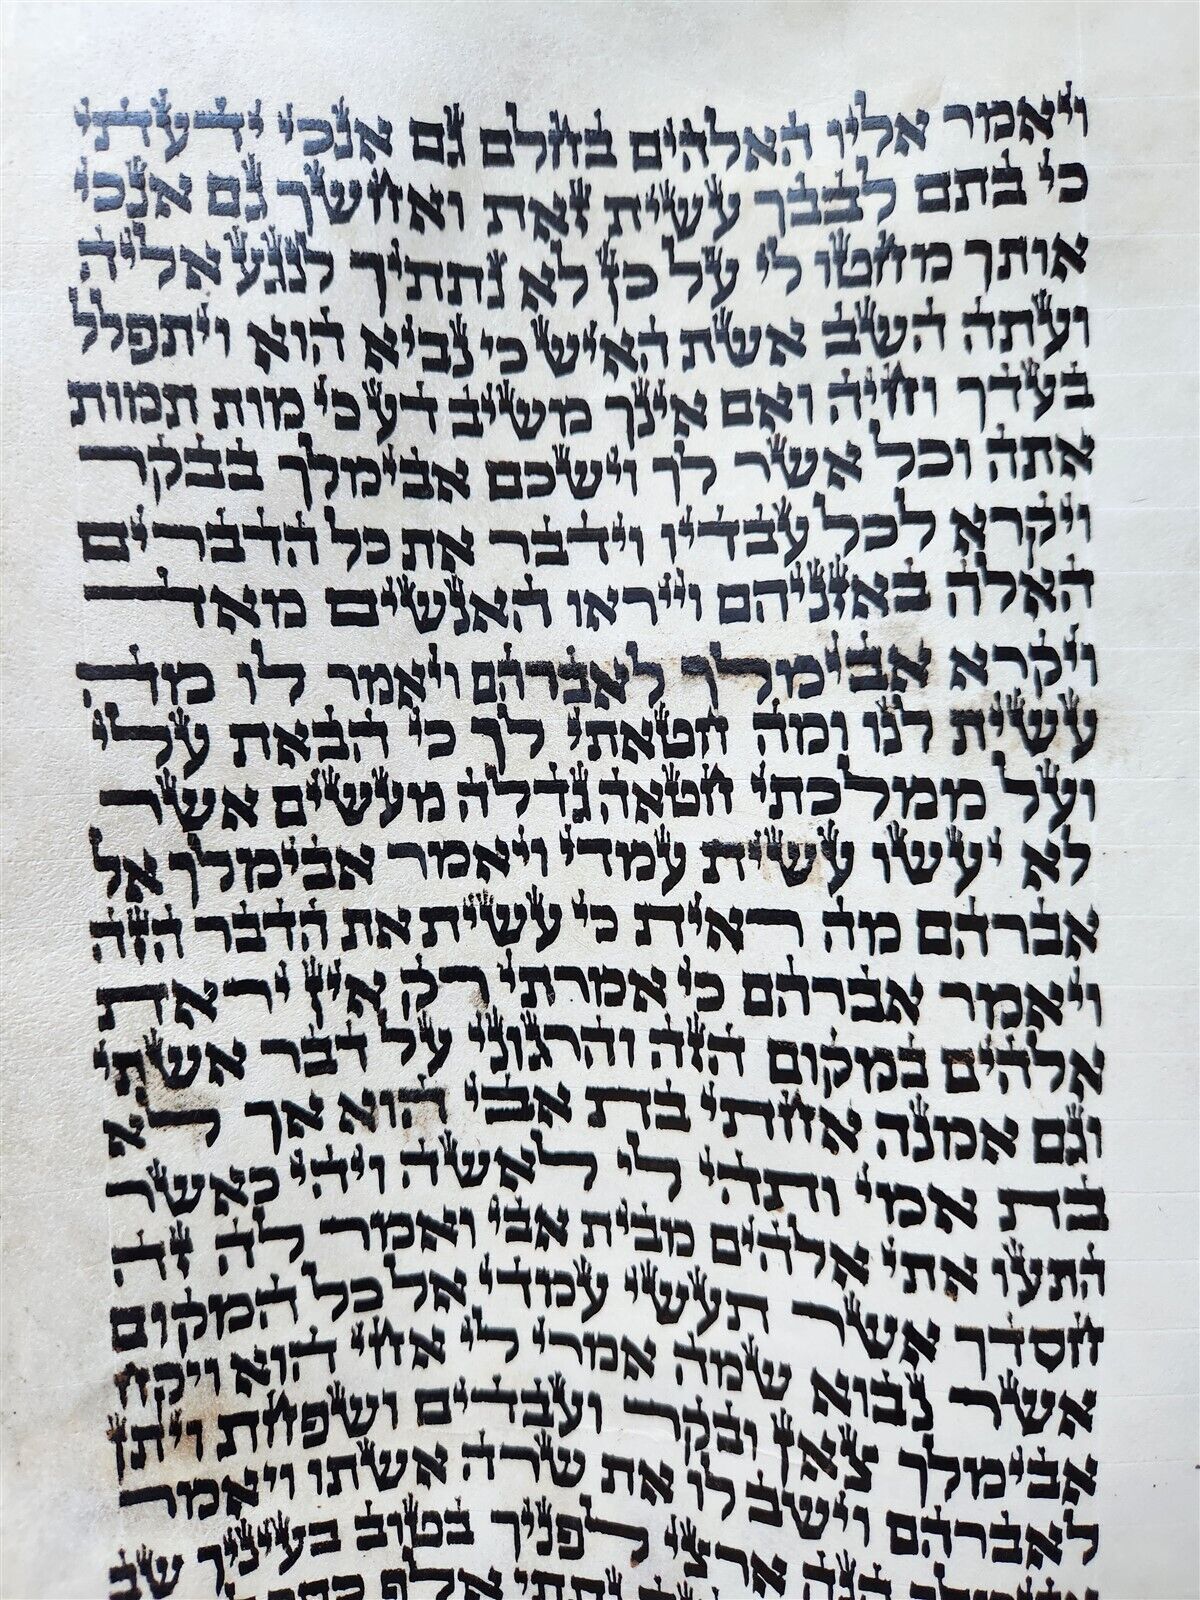 ויאמר אליו האלהים בחלם גם אנכי ידעתי
כי בתם לבבך עשית זאת ואחשך גם אנכי
אותך מחטו לי על כן לא נתתיך לנגע אליה
ועתה השב אשת האיש כי נביא הוא ויתפלל
בעדך וחיה ואם אינך משיב דע כי מות תמות
אתה וכל אשר לך וישכם אבימלך בבקר
ויקרא לכל עבדיו וידבר את כל הדברים
האלה באזניהם וייראו האנשים מאד
ויקרא אבימלך לאברהם ויאמר לו מה
עשית לנו ומה חטאתי לך כי הבאת עלי
ועל ממלכתי חטאה גדלה מעשים אשר
לא יעשו עשית עמדי ויאמר אבימלך אל
אברהם מה ראית כי עשית את הדבר הזה
ויאמר אברהם כי אמרתי רק אין יראת
אלהים במקום הזה והרגוני על דבר אשתי
וגם אמנה אחתי בת אבי הוא אך לא
בת אמי ותהי לי לאשה ויהי כאשר
התעו אתי אלהים מבית אבי ואמר לה זה
חסדך אשר תעשי עמדי אל כל המקום
אשר נבוא שמה אמרי לי אחי הוא ויקח
אבימלך צאן ובקר ועבדים ושפחת ויתן
לאברהם וישב לו את שרה אשתו ויאמר
אבימלך הנה ארצי לפניך בטוב בעיניך שב